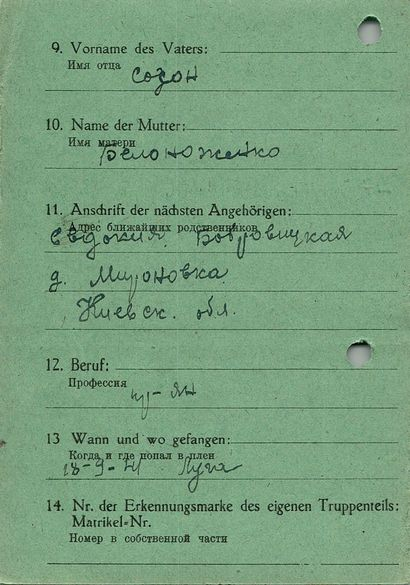 9. Vorname des Vaters:
Имя отца
созон
10. Name der Mutter:
Имя матери
Белоноженко
11. Anschrift der nächsten Angehörigen:
Адрес ближайших родственников
Евдокия Бобровицкая
д. Мироновка
Киевск. обл.
12. Beruf:
Профессия
кр-ян
13 Wann und wo gefangen:
Когда и где попал в плен
18-9-41 Луга
14. Nr. der Erkennungsmarke des eigenen Truppenteils:
Matrikel=Nr.
Номер в собственной части